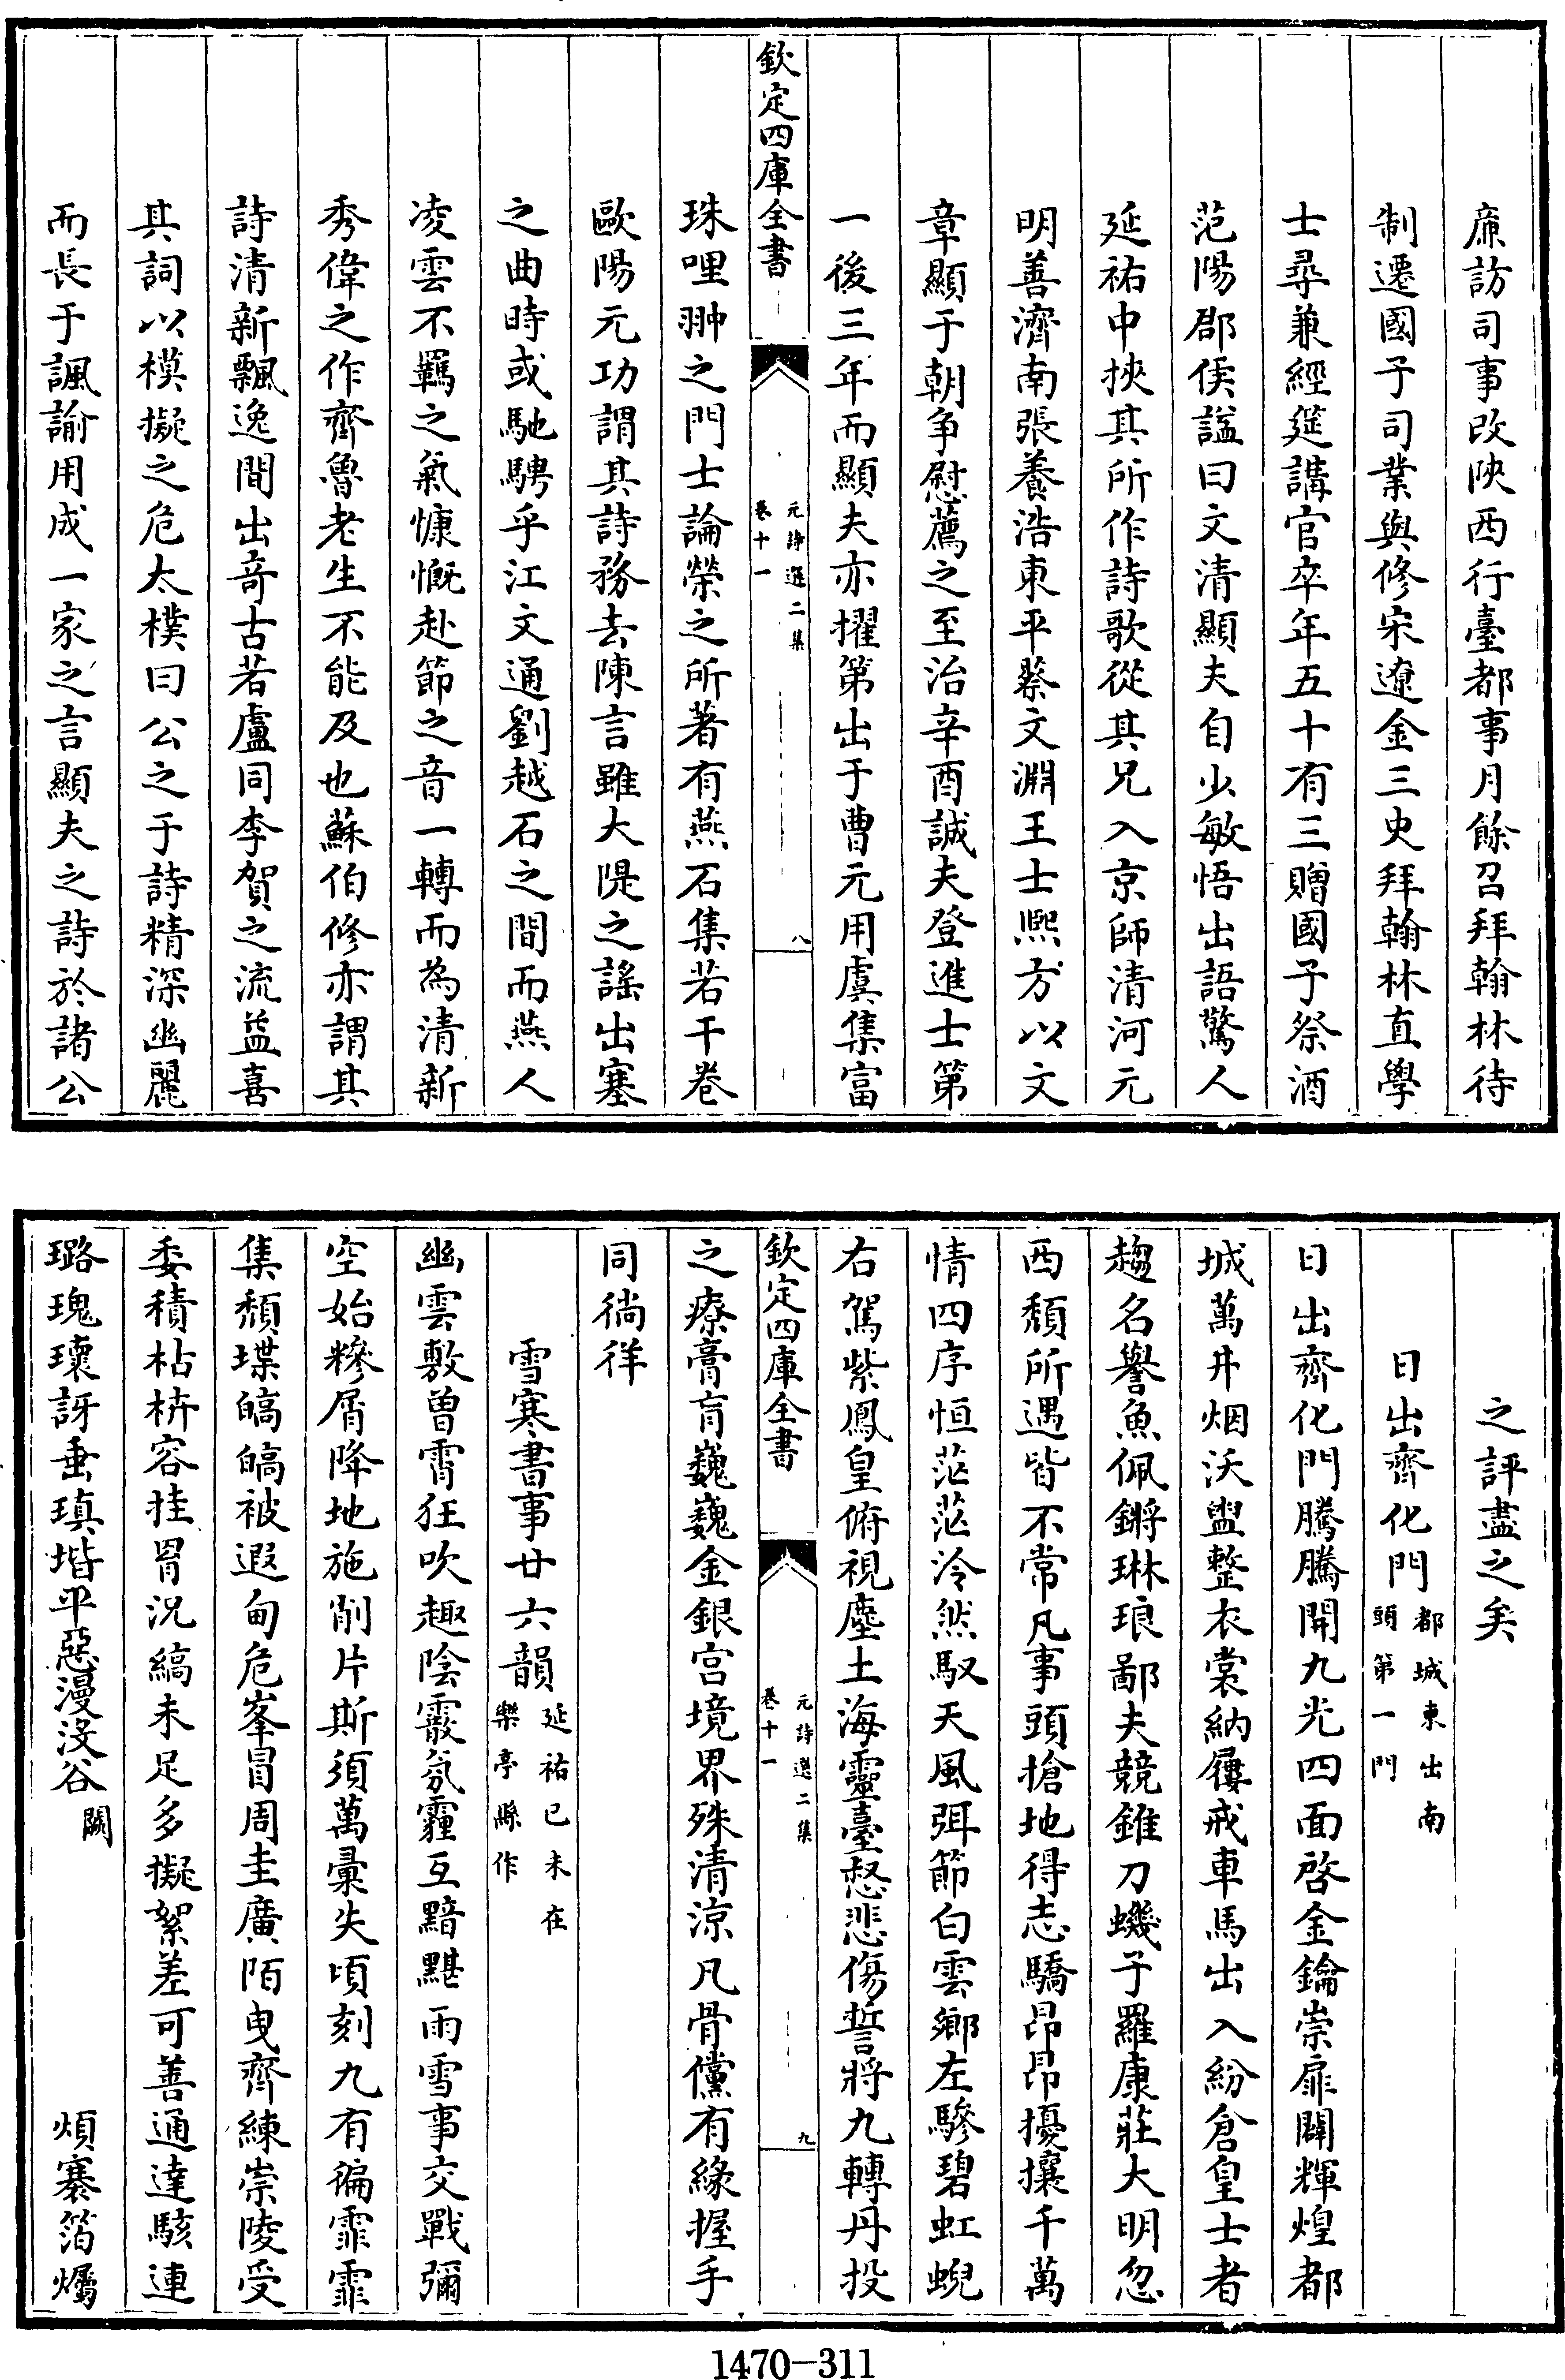 廉訪司事改陜西行臺都事月餘召拜翰林待
制遷國子司業與修宋遼金三史拜翰林直學
士尋兼經筵講官卒年五十有三贈國子祭酒
范陽郡侯諡曰文清顯夫自少敏悟出語驚人
延祐中挾其所作詩歌從其兄入京師清河元
明善濟南張養浩東平蔡文淵王士熙方以文
章顯于朝争慰薦之至治辛酉誠夫登進士第
一後三年而顯夫亦擢第出于曹元用虞集富
欽定四庫全書
元詩選二集
卷十一
八
珠哩翀之門士論榮之所著有燕石集若干卷
歐陽元功謂其詩務去陳言雖大隄之謠出塞
之曲時或馳騁乎江文通劉越石之間而燕人
凌雲不羈之氣慷慨赴節之音一轉而為清新
秀偉之作齊魯老生不能及也蘇伯修亦謂其
詩清新飄逸間出竒古若盧同李賀之流益喜
其詞以模擬之危太樸曰公之于詩精深幽麗
而長于諷諭用成一家之言顯夫之詩於諸公
之評盡之矣
日出齊化門都城東出南
頭第一門
日出齊化門騰騰開九光四面啓金鑰崇扉闢輝煌都
城萬井烟沃盥整衣裳納屨戒車馬出入紛倉皇士者
趨名譽魚佩鏘琳琅鄙夫競錐刀蟣子羅康莊大明忽
西頽所遇皆不常凡事頭搶地得志驕昂昂擾攘千萬
情四序恒茫茫泠然馭天風弭節白雲鄉左驂碧虹蜺
右駕紫鳳皇俯視塵土海靈臺慭悲傷誓將九轉丹投
欽定四庫全書
元詩選二集
卷十一
九
之療膏肓巍巍金銀宫境界殊清涼凡骨儻有緣握手
同徜徉
雪寒書事廿六韻延祐已未在
樂亭縣作
幽雲敷曽霄狂吹趣陰霰氛霾互黯黮雨雪事交戰彌
空始糝屑降地施削片斯須萬彙失頃刻九有徧霏霏
集頽堞皜皜被遐甸危峯冒周圭廣陌曳齊練崇陵受
委積枯枿容挂罥況縞未足多擬絮差可善通達駭連
璐瑰瓌訝垂瑱堦平惡漫沒谷闕 煩寨箔爥
1470-311